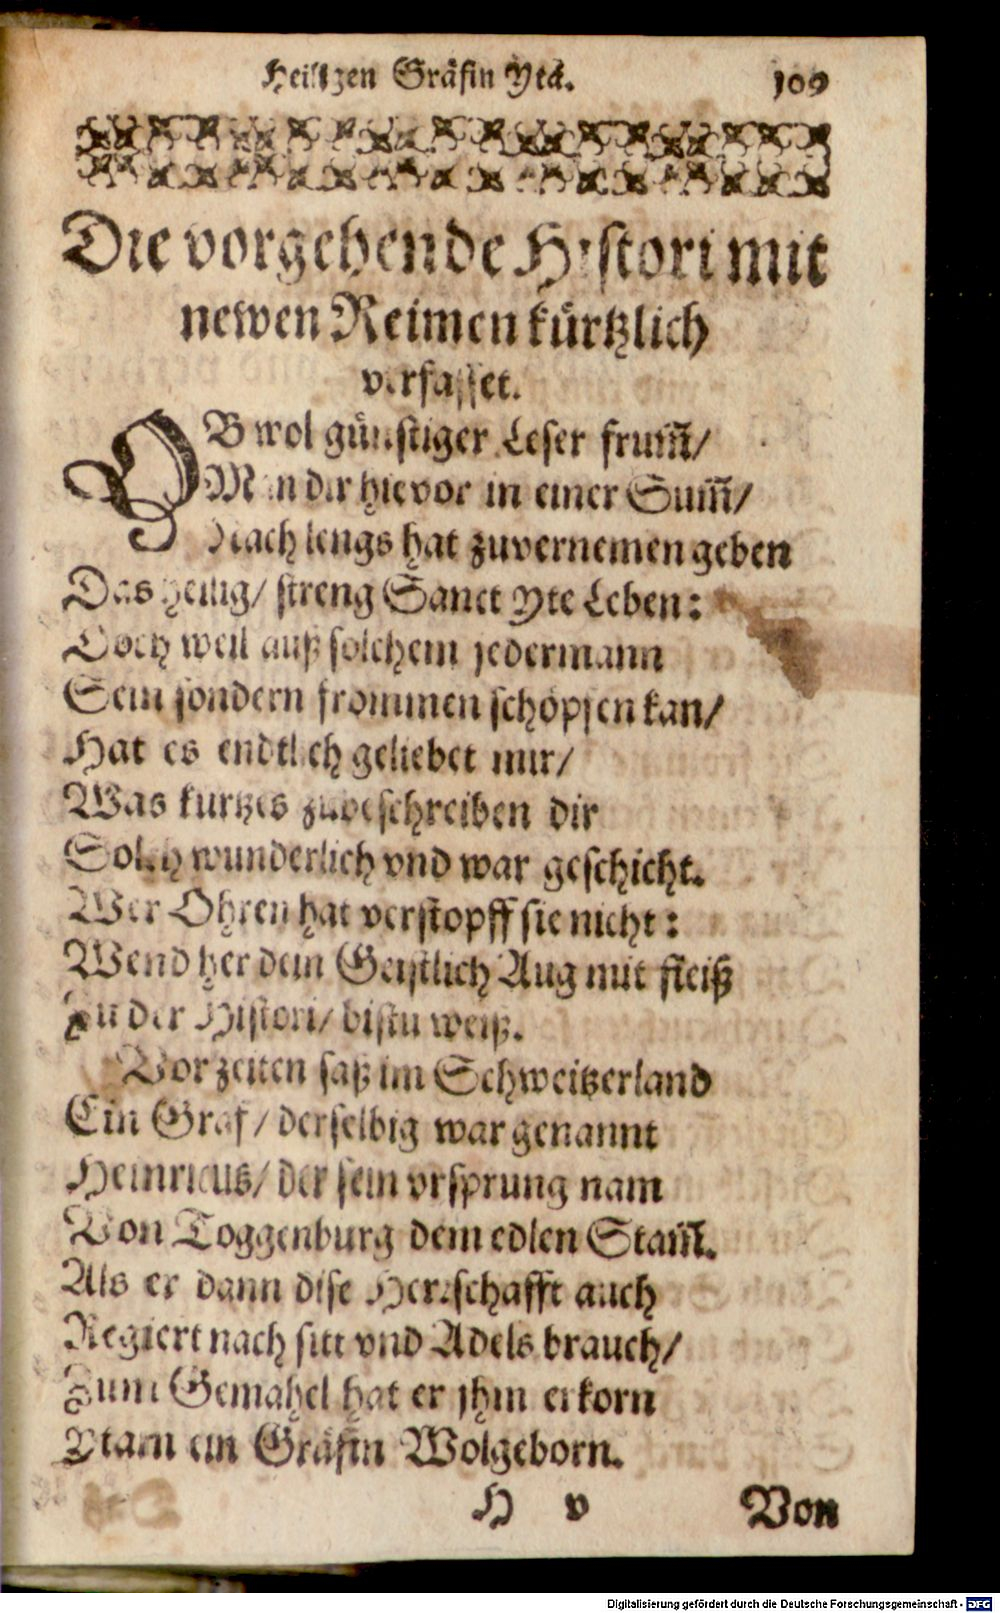 Heiligen Gräfin Yta.
109
Die vorgehende Histori mit
newen Reimen kürtzlich
verfasset.
OB wol günstiger Leser frum̃/
Man dir hievor in einer Sum̃/
Nach lengs hat zuvernemen geben
Das heilig/ streng Sanct Yte Leben:
Doch weil auß solchem jedermann
Sein sondern frommen schöpfen kan/
Hat es endtlich geliebet mir/
Was kurtzes zubeschreiben dir
Solch wunderlich vnd war geschicht.
Wer Ohren hat verstopff sie nicht:
Wend her dein Geistlich Aug mit fleiß
Zu der Histori/ bistu weiß.
Vor zeiten saß im Schweitzerland
Ein Graf/ derselbig war genannt
Heinricus/ der sein vrsprung nam
Von Toggenburg dem edlen Stam̃.
Als er dann dise Herrschafft auch
Regiert nach sitt vnd Adels brauch/
Zum Gemahel hat er jhm erkorn
Ytam ein Gräfin Wolgeborn.
H v
Von
Digitalisierung gefördert durch die Deutsche Forschungsgemeinschaft - DFG